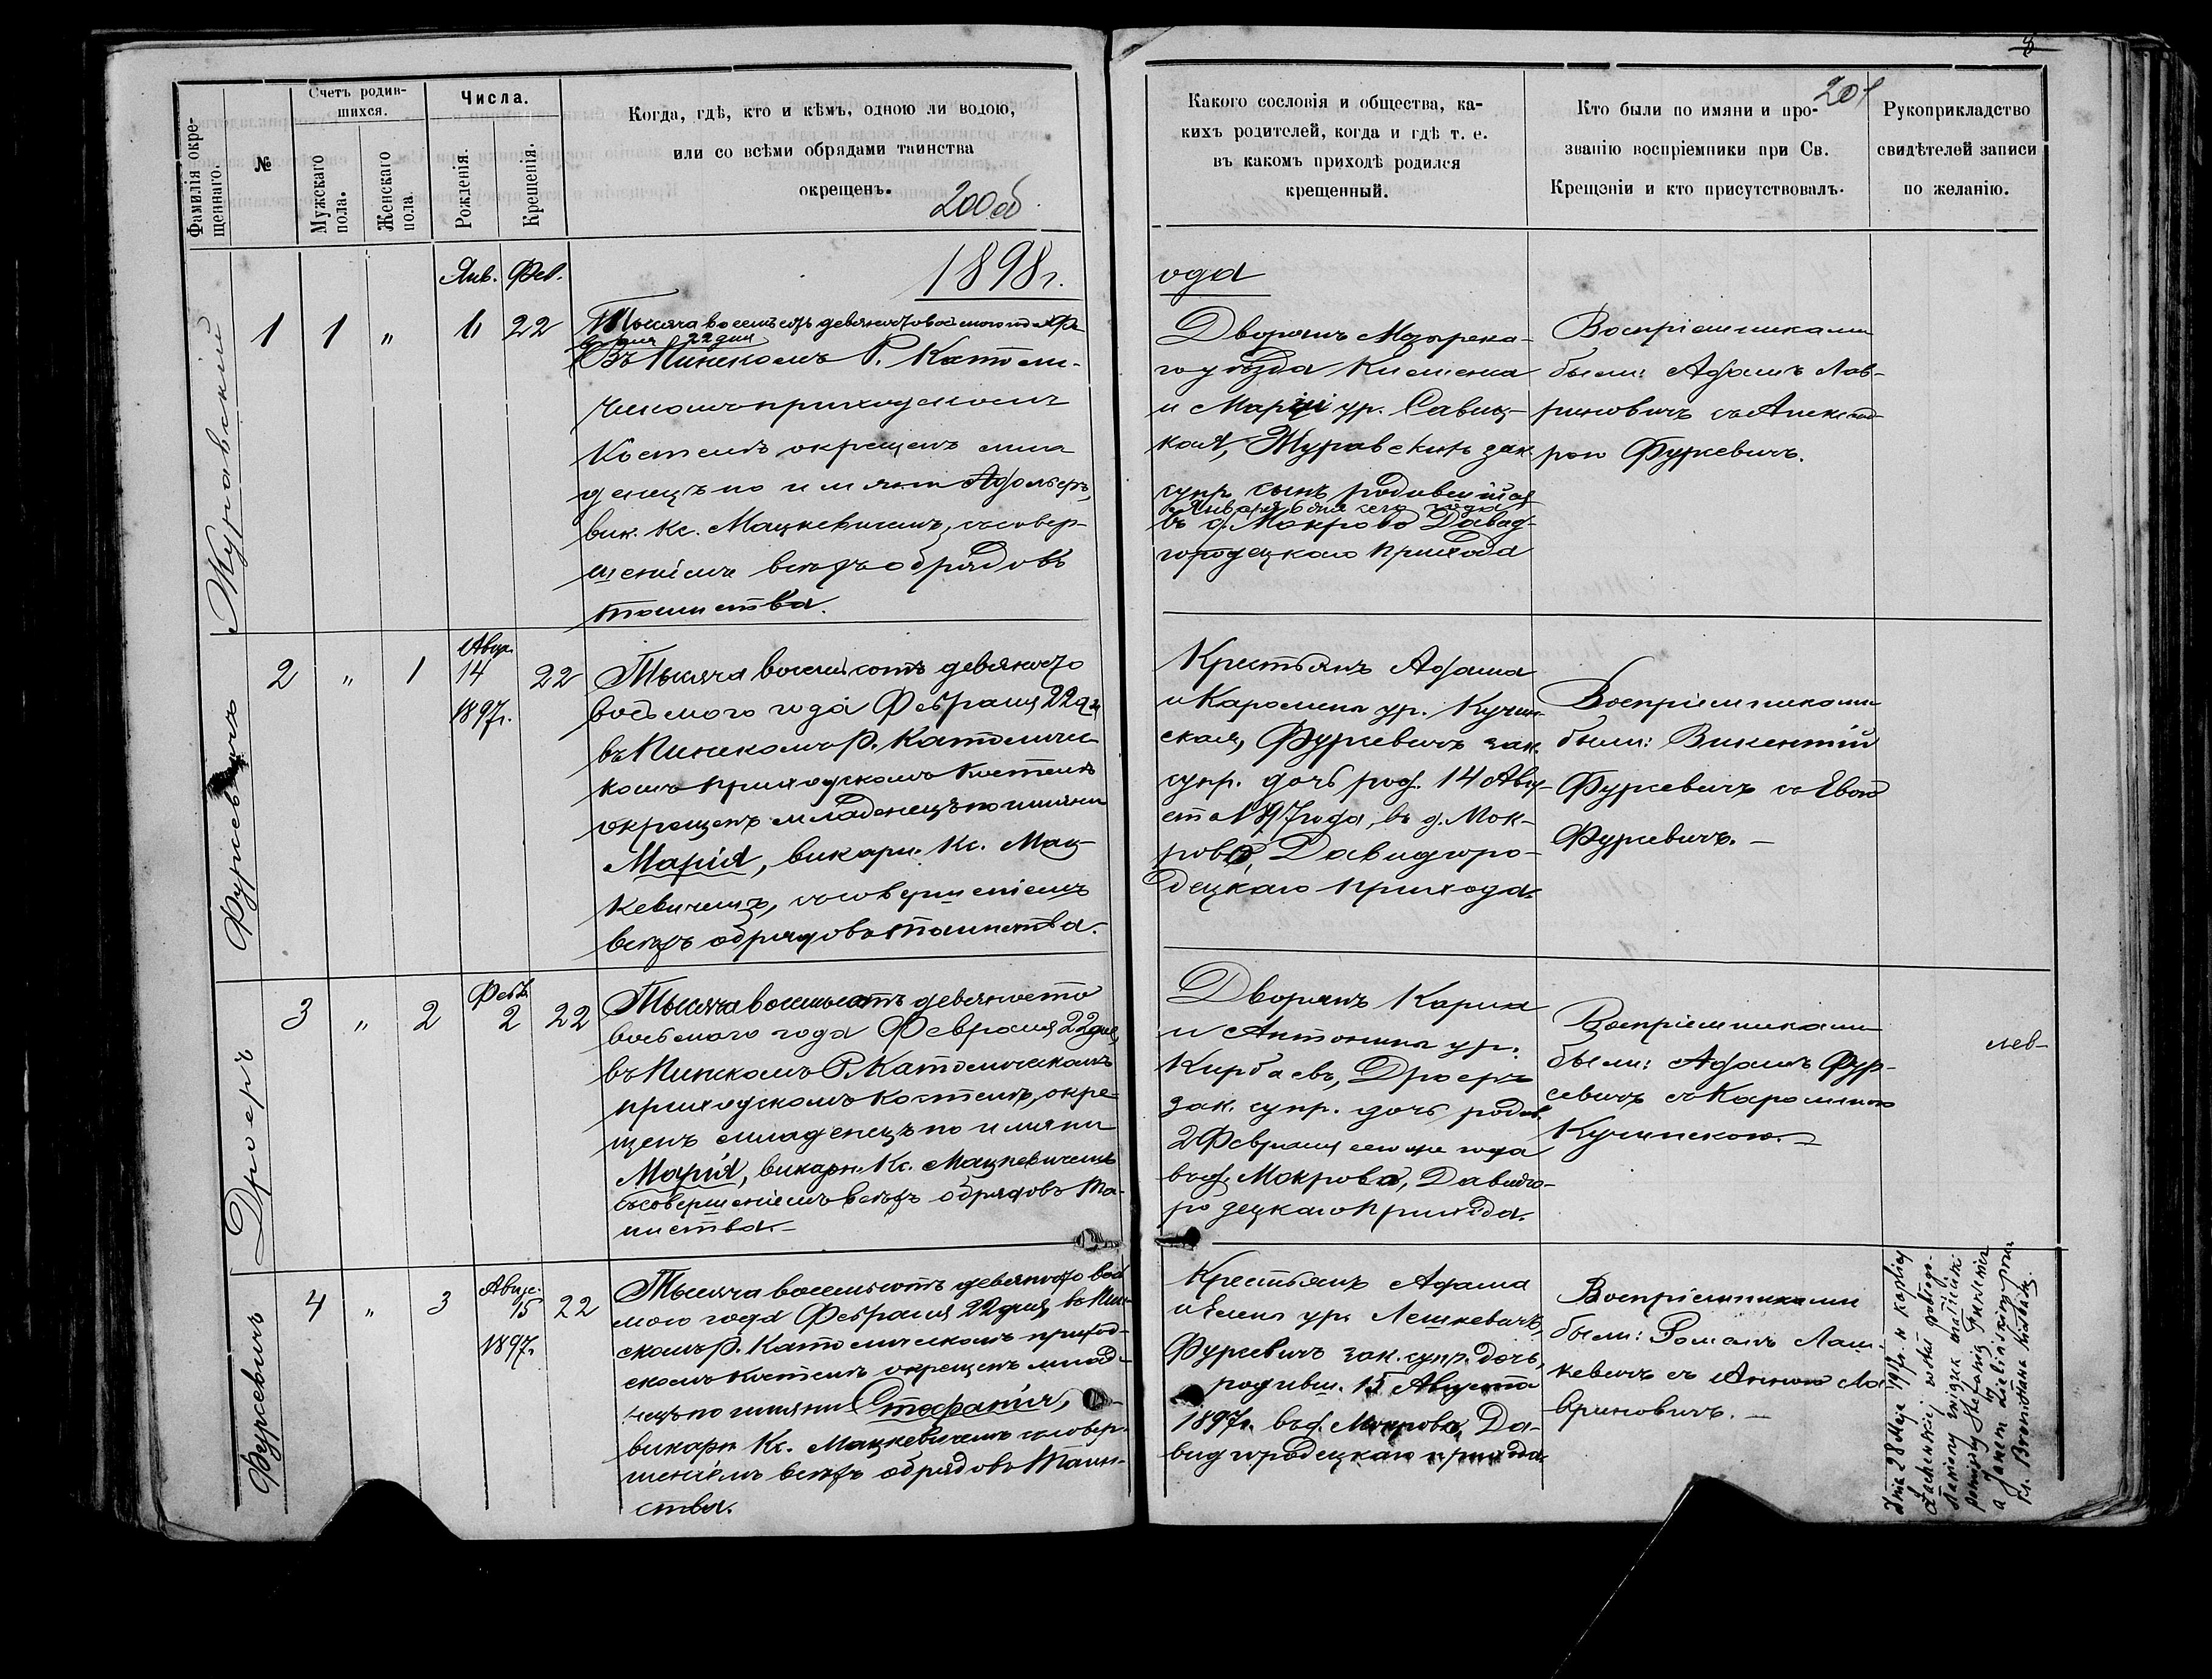 Фамилія окре-
щеннаго.
№
Счетъ родив-
шихся.
Мужскаго
пола.
Женскаго
пола
Числа.
Рожденія.
Крещенія.
Когда, гдѣ, кто и кѣмъ, одною ли водою,
или со всѣми обрядами таинства
окрещенъ.
200об
1898г.
Журавскій
1 1 " Янв. 6 Фев. 22
Тысяча восемьсотъ девяностовосьмого года Фе-
враля 22 дня
Въ Пинскомъ Р. Католи-
ческомъ приходскомъ
Костелѣ окрещенъ мла
денецъ по имяни Адольфъ,
вик. Кс. Мацкевичемъ, съ совер-
шеніемъ всѣхъ обрядовъ
таинства.
Фурсевичъ
2 " 1 Авг. 14 1897г. 22
Тысяча восемьсотъ девяносто
восьмого года Февраля 22 дн
въ Пинскомъ Р. Католичес
комъ приходскомъ Костелѣ
окрещенъ младенецъ по имяни
Марія, викарн. Кс. Мац-
кевичемъ, съ совершеніемъ
всѣхъ обрядовъ таинства.
Дроеръ
3 " 2 Февр. 2 22
Тысяча восемьсотъ девяносто
восьмого года Февраля 22 дня,
въ Пинскомъ Р. Католическомъ
приходскомъ костелѣ, окре-
щенъ младенецъ по имяни
Марія, викарн. Кс. Мацкевичемъ
съ совершеніемъ всѣхъ обрядовъ та-
инства.
Фурсевичъ
4 " 3 Авгус. 15 1897г. 22
Тысяча восемьсотъ девяносто вось
мого года Февраля 22 дня, въ Пин-
скомъ Р. Католическомъ приход-
скомъ костелѣ окрещенъ млад-
нецъ по имяни Стефанія,
викарн Кс. Мацкевичемъ съ совер-
шеніемъ всѣхъ обрядовъ Таин-
ства.
8
201
Какого сословія и общества, ка-
кихъ родителей, когда и гдѣ т. е.
въ какомъ приходѣ родился
крещенный.
Кто были по имяни и про-
званію воспріемники при Св.
Крещеніи и кто присутствовалъ.
Рукоприкладство
свидѣтелей записи
по желанію.
ода
Дворянъ Мозырска-
го уѣзда Климента
и Маріи ур. Савиц-
кая, Журавскихъ зак.
супр. сынъ родившійся
Января 6 дня сего года
въ д. Мокрово Давид-
городецкаго прихода
Воспріемниками
были: Адамъ Лав-
риновичъ съ Александ-
рою Фурсевичъ.
Крестьянъ Адама
и Каролины ур. Кучин-
ская, Фурсевичъ зак.
супр. дочь род. 14 Авгу-
ста 1897 года, въ д. Мок-
рово, Давидгоро-
децкаго прихода.
Воспріемниками
были: Викентій
Фурсевичъ съ Евою
Фурсевичъ. —
Дворянъ Карла
и Антонины ур.
Кирбаевъ, Дроеръ
зак. супр. дочь родив.
2 Февраля сего же года
въ д. Мокрово, Давидго-
родецкаго прихода.
Воспріемниками
были: Адамъ Фур-
севичъ съ Каролиною
Кучинскою. —
Крестьянъ Адама
и Елены ур. Лешкевичъ,
Фурсевичъ зак. супр. дочь,
родивш. 15 Августа
1897г. въ д. Мокрово, Да-
видгородецкаго прихода.
Воспріемниками
были: Романъ Лаш-
кевичъ съ Анною Ла
вриновичъ. —
Dnia 28 Maja 1919 r. w kaplicy
Łachewskiej został pobłogo-
sławiony związek małżeński
pomiędzy Stefanią Fursewicz
a Janem
ks. Bronisław